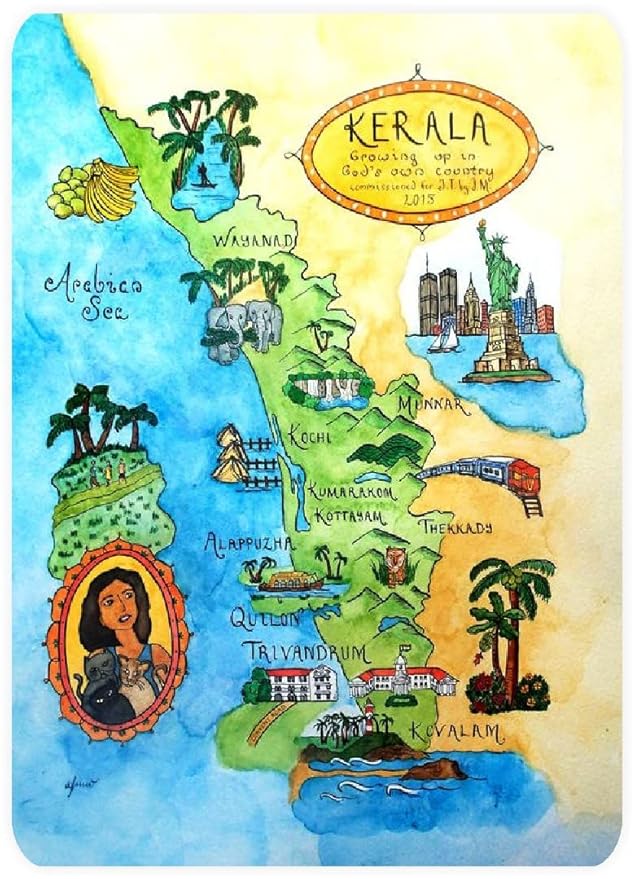 KERALA
Growing up in
God's own country
commissioned for J.T. by J.M.
2015
WAYANAD
Arabian
Sea
MUNNAR
KOCHI
KUMARAKOM
KOTTAYAM
THEKKADY
ALAPPUZHA
QUILON
TRIVANDRUM
KOVALAM